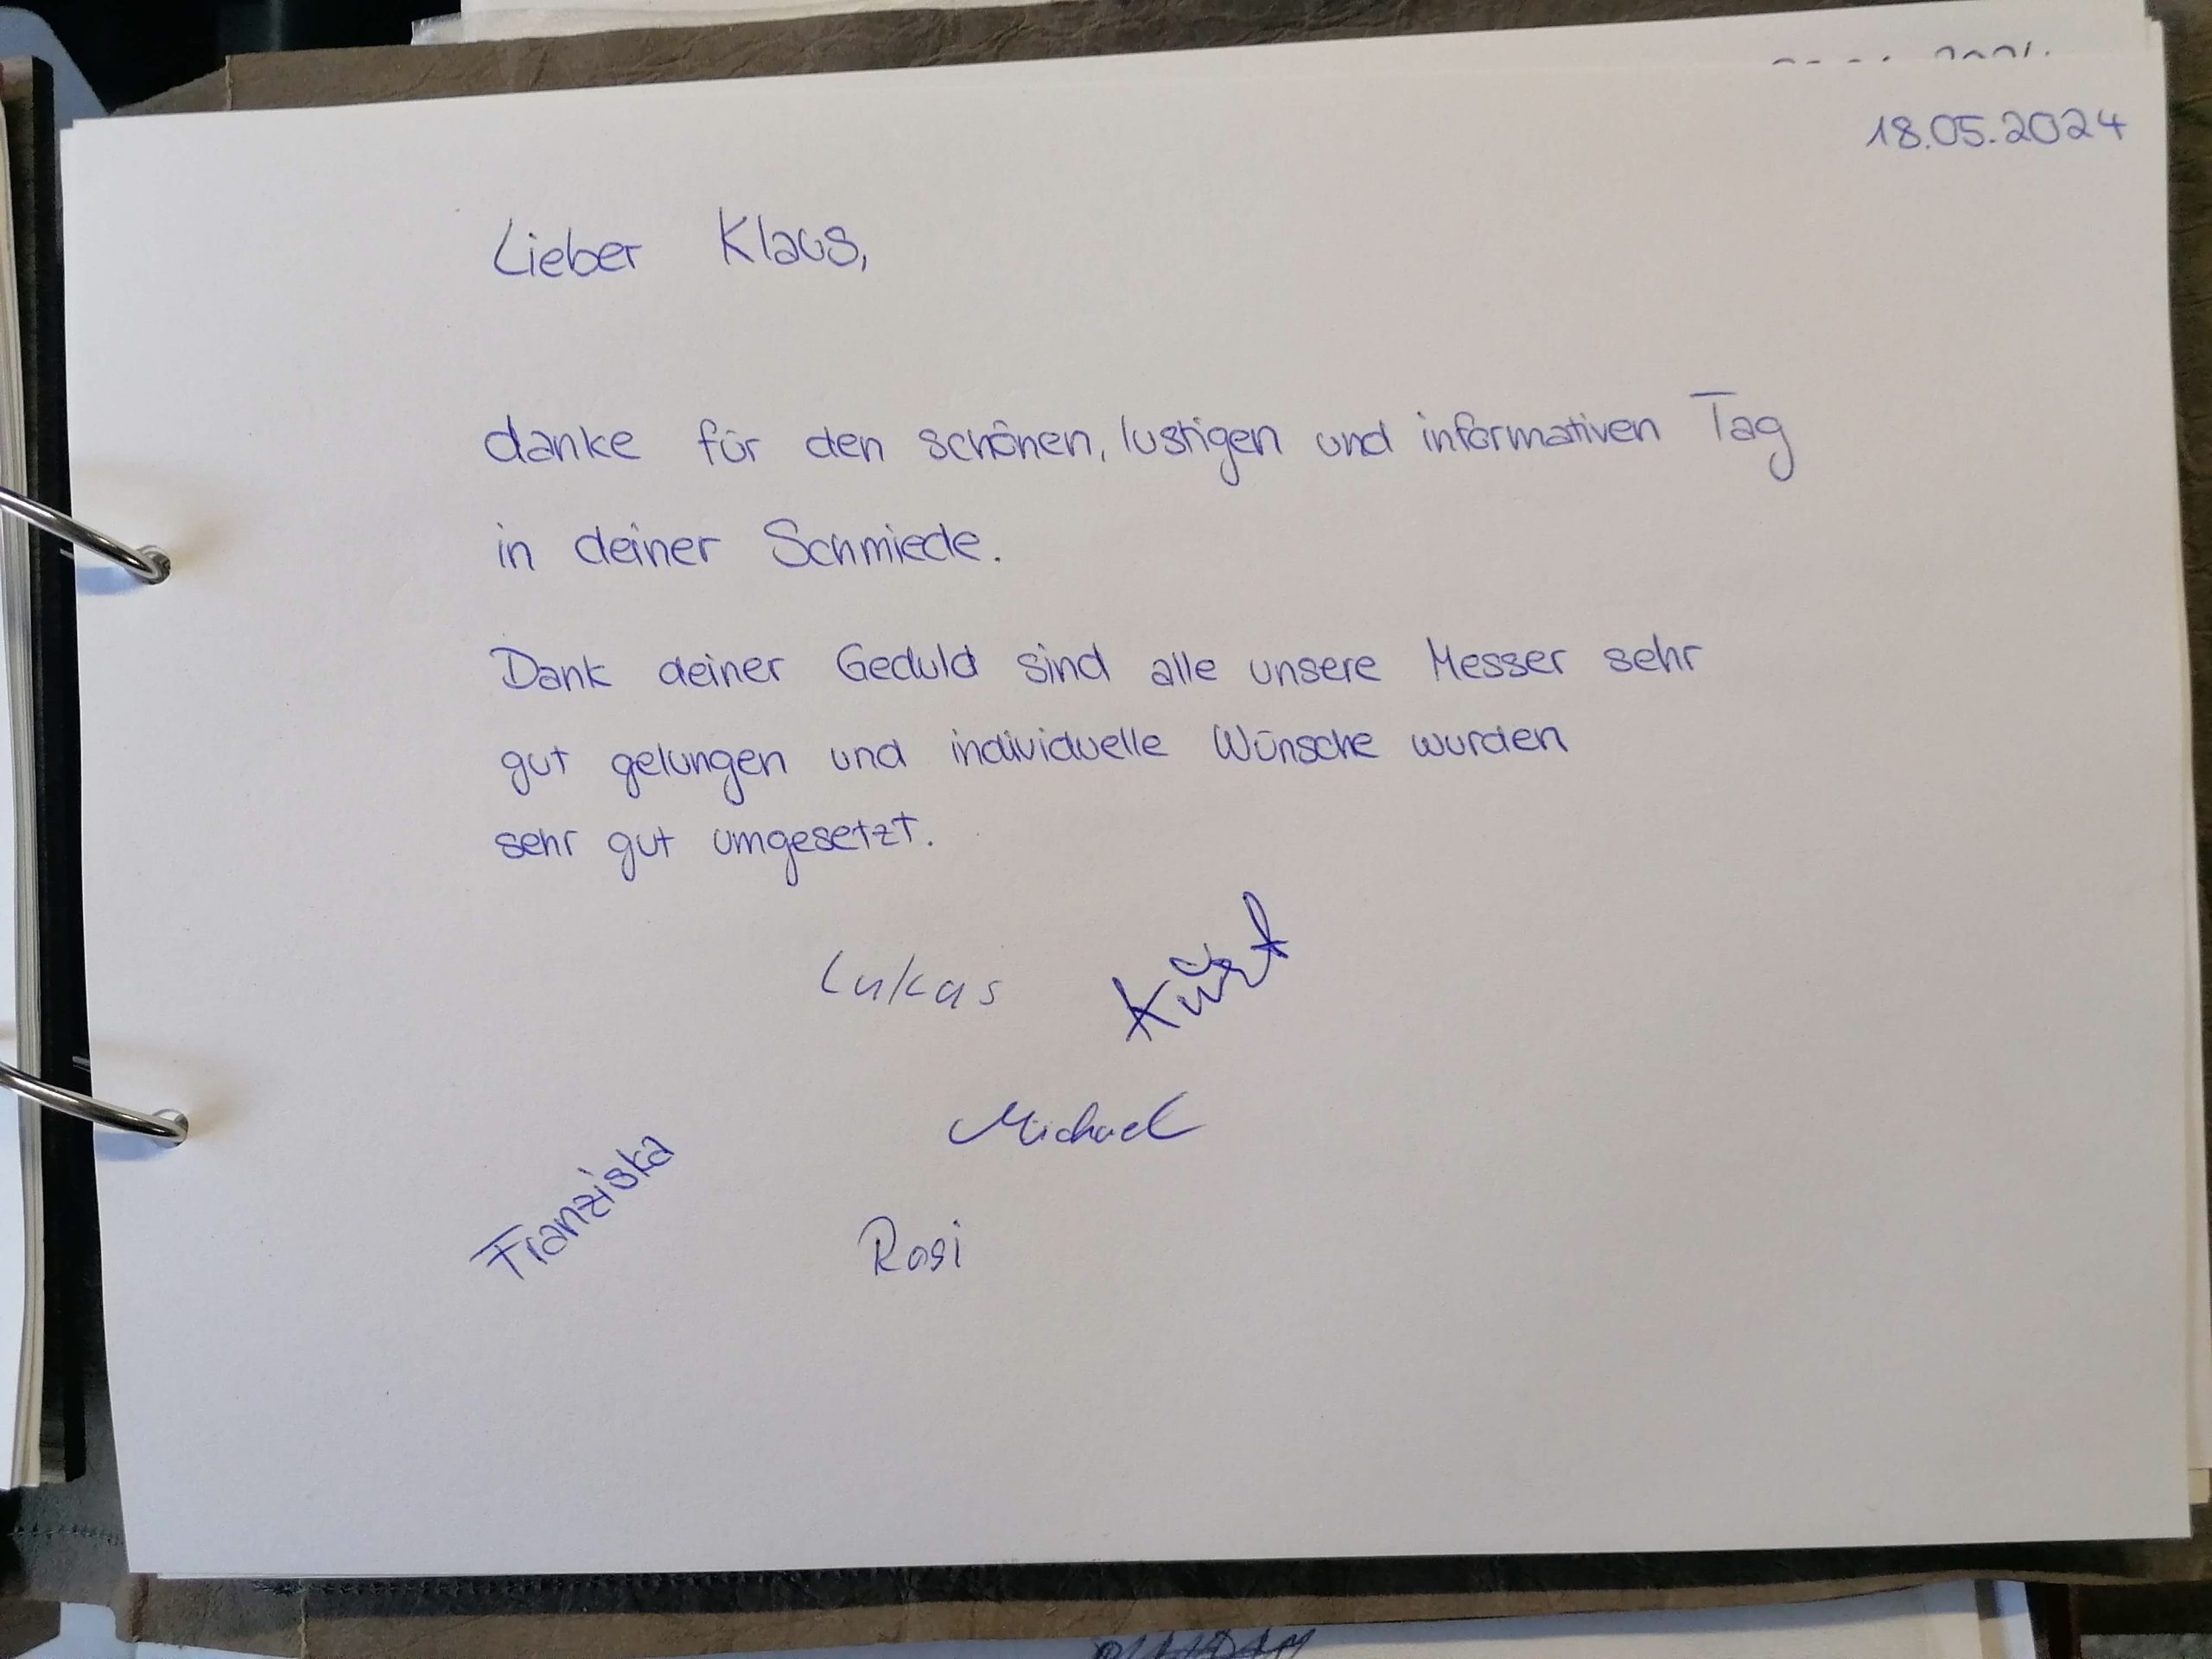 18.05.2024
Lieber Klaus,
danke für den schönen, lustigen und informativen Tag
in deiner Schmiede.
Dank deiner Geduld sind alle unsere Messer sehr
gut gelungen und individuelle Wünsche wurden
sehr gut umgesetzt.
Lukas Kurt
Michael
Franziska
Rosi